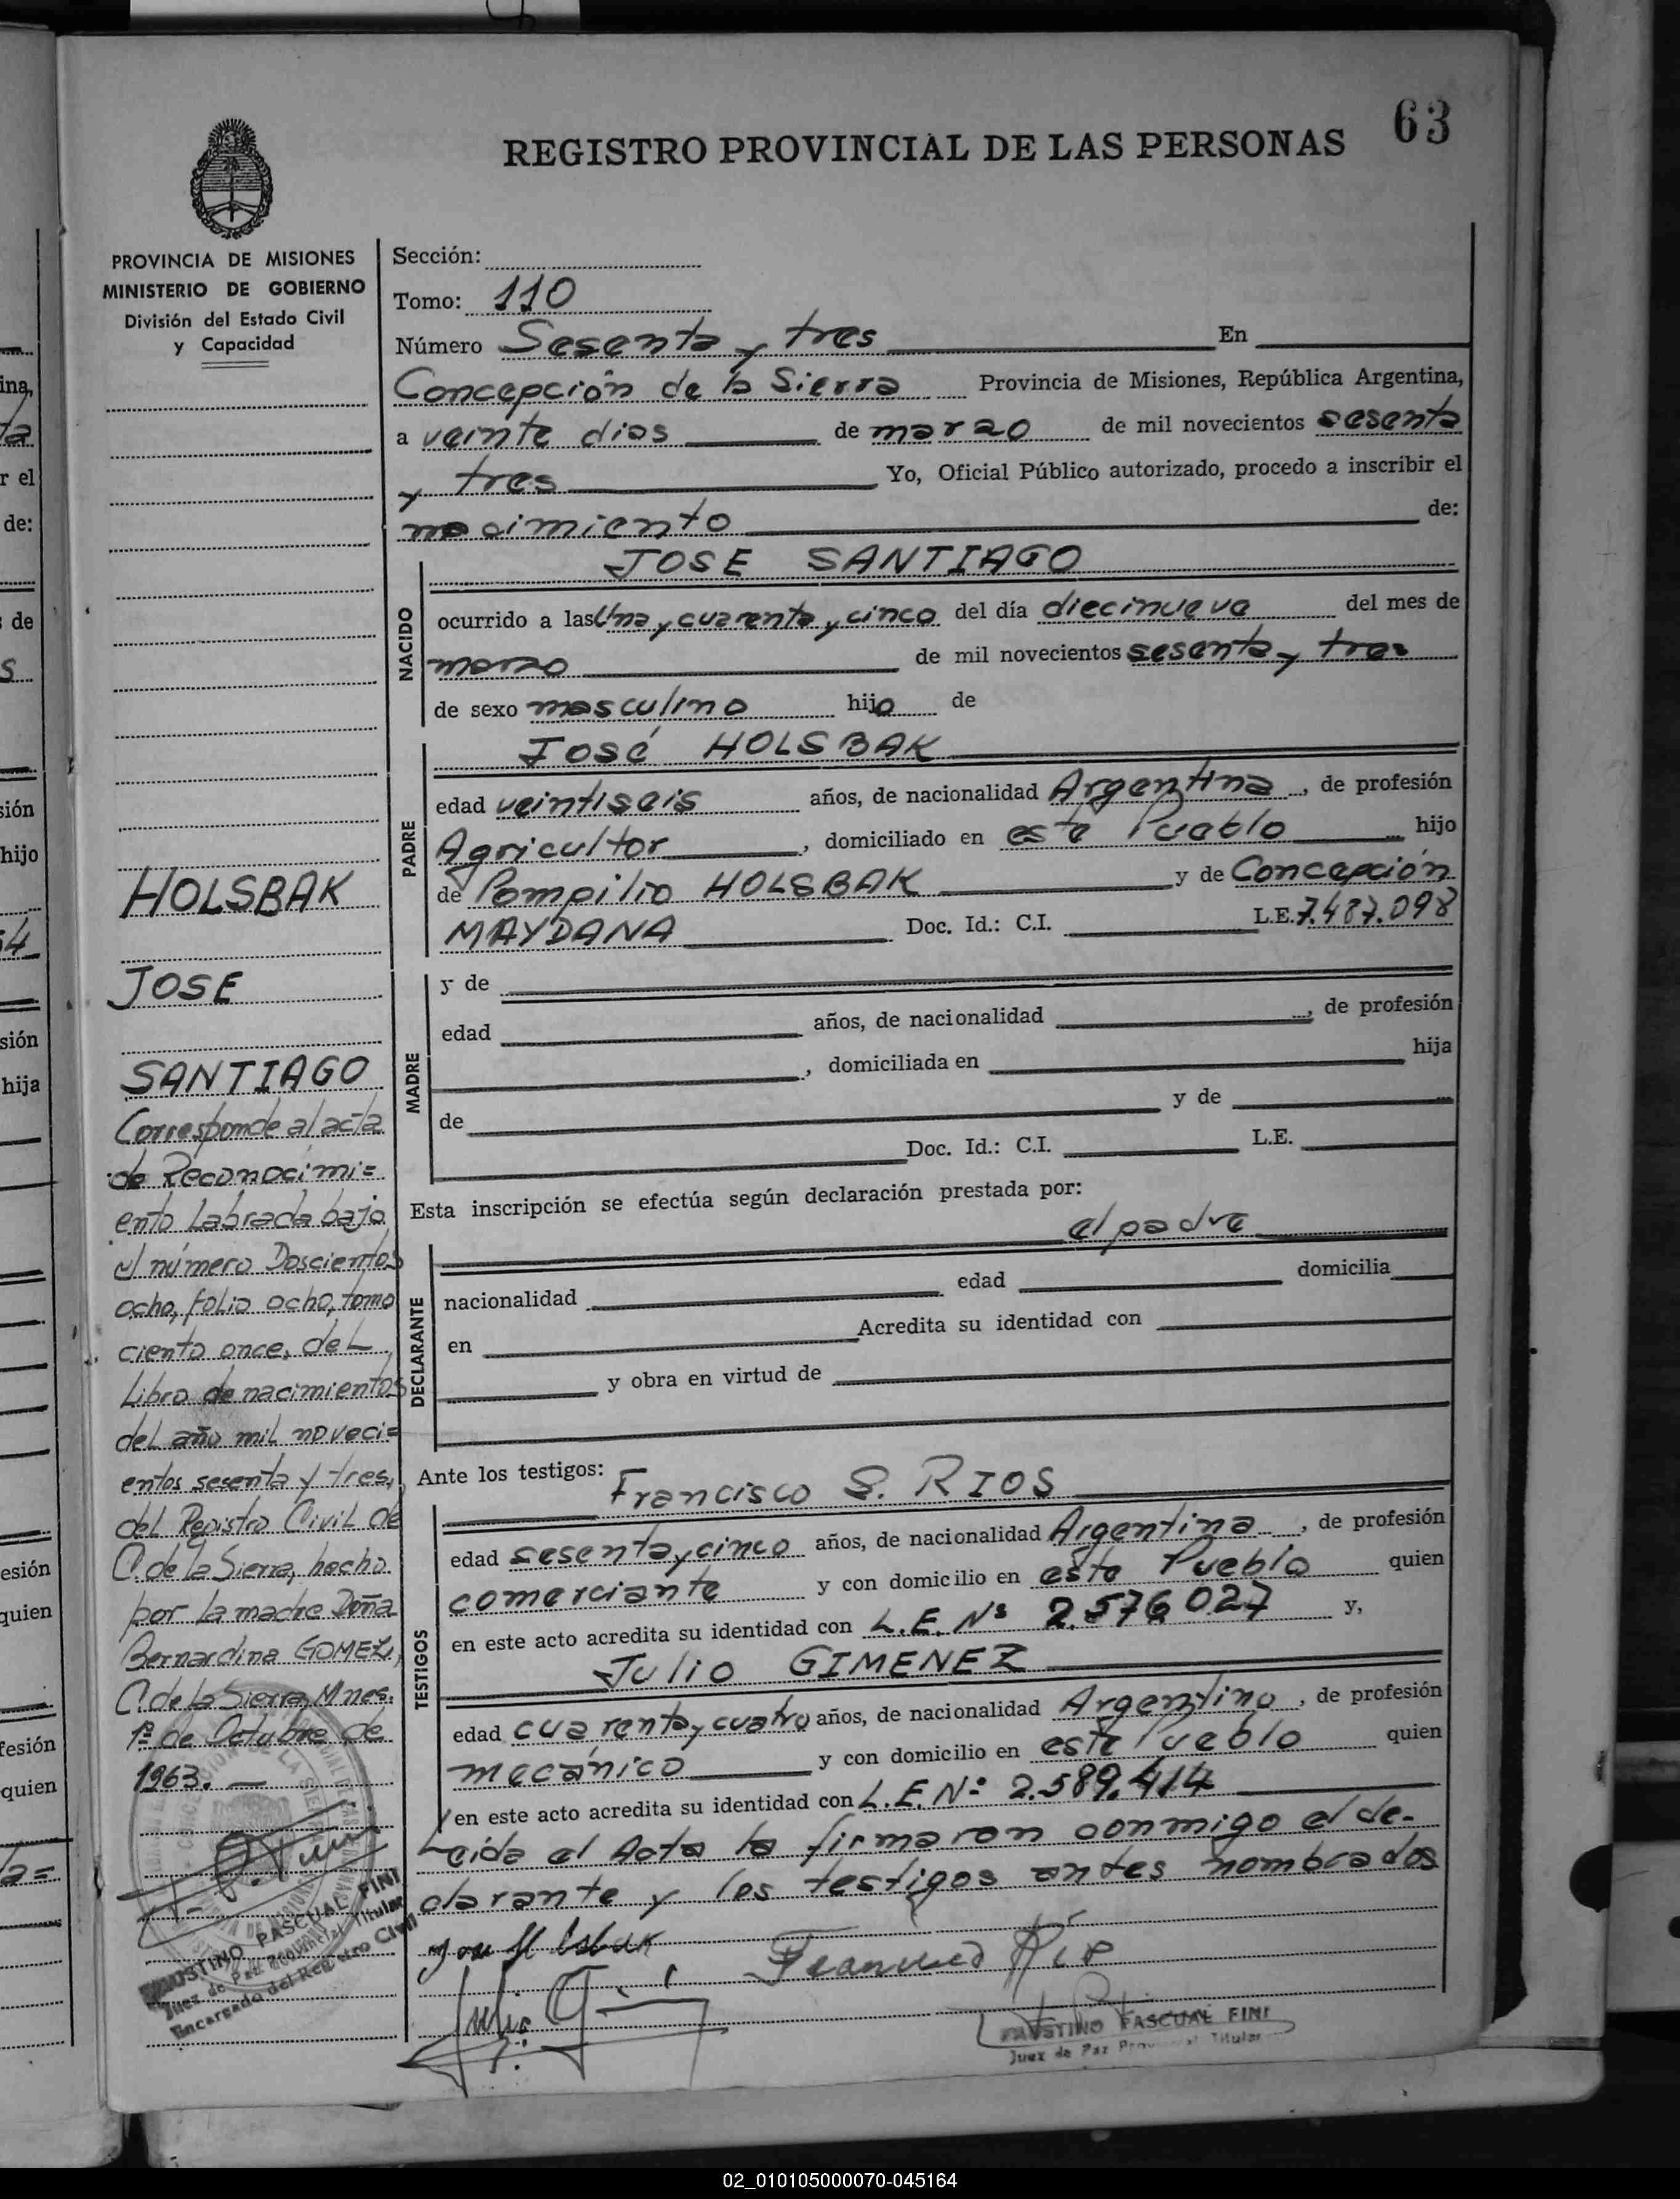 63
REGISTRO PROVINCIAL DE LAS PERSONAS
PROVINCIA DE MISIONES
MINISTERIO DE GOBIERNO
División del Estado Civil
y Capacidad
HOLSBAK
JOSE
SANTIAGO
Corresponde al acta
de Reconocimi=
ento Labrada bajo
el número Doscientos
ocho, folio ocho, tomo
ciento once, del
Libro de nacimientos
del año mil noveci=
entos sesenta y tres,
del Registro Civil de
C. de la Sierra, hecho
por la madre Doña
Bernardina GOMEZ,
C. de la Sierra, Mnes.
1º de Octubre de
1963. —
FAUSTINO PASCUAL FINI
Juez de Paz Provincial Titular
Encargado del Registro Civil
Sección:
Tomo: 110
Número Sesenta y tres En
Concepción de la Sierra Provincia de Misiones, República Argentina,
a veinte dias de marzo de mil novecientos sesenta
y tres Yo, Oficial Público autorizado, procedo a inscribir el
nacimiento de:
NACIDO
JOSE SANTIAGO
ocurrido a las Una y cuarenta y cinco del día diecinueve del mes de
marzo de mil novecientos sesenta y tres
de sexo masculino hijo de
PADRE
José HOLSBAK
edad veintiseis años, de nacionalidad Argentina, de profesión
Agricultor, domiciliado en este Pueblo hijo
de Pompilio HOLSBAK y de Concepción
MAYDANA Doc. Id.: C.I. L.E. 7.487.098
MADRE
y de
edad años, de nacionalidad , de profesión
, domiciliada en hija
de y de
Doc. Id.: C.I. L.E.
Esta inscripción se efectúa según declaración prestada por:
el padre
DECLARANTE
nacionalidad edad domicilia
en Acredita su identidad con
y obra en virtud de
Ante los testigos: Francisco S. RIOS
TESTIGOS
edad sesenta y cinco años, de nacionalidad Argentina, de profesión
comerciante y con domicilio en este Pueblo quien
en este acto acredita su identidad con L.E. Nº 2.576.027 y,
Julio GIMENEZ
edad cuarenta y cuatro años, de nacionalidad Argentino, de profesión
mecánico y con domicilio en este Pueblo quien
en este acto acredita su identidad con L.E. Nº 2.589.414
Leida el Acta la firmaron conmigo el de-
clarante y los testigos antes nombrados
Jose Holsbak Francisco Rios
Julio
FAUSTINO PASCUAL FINI
Juez de Paz Provincial Titular
02_010105000070-045164